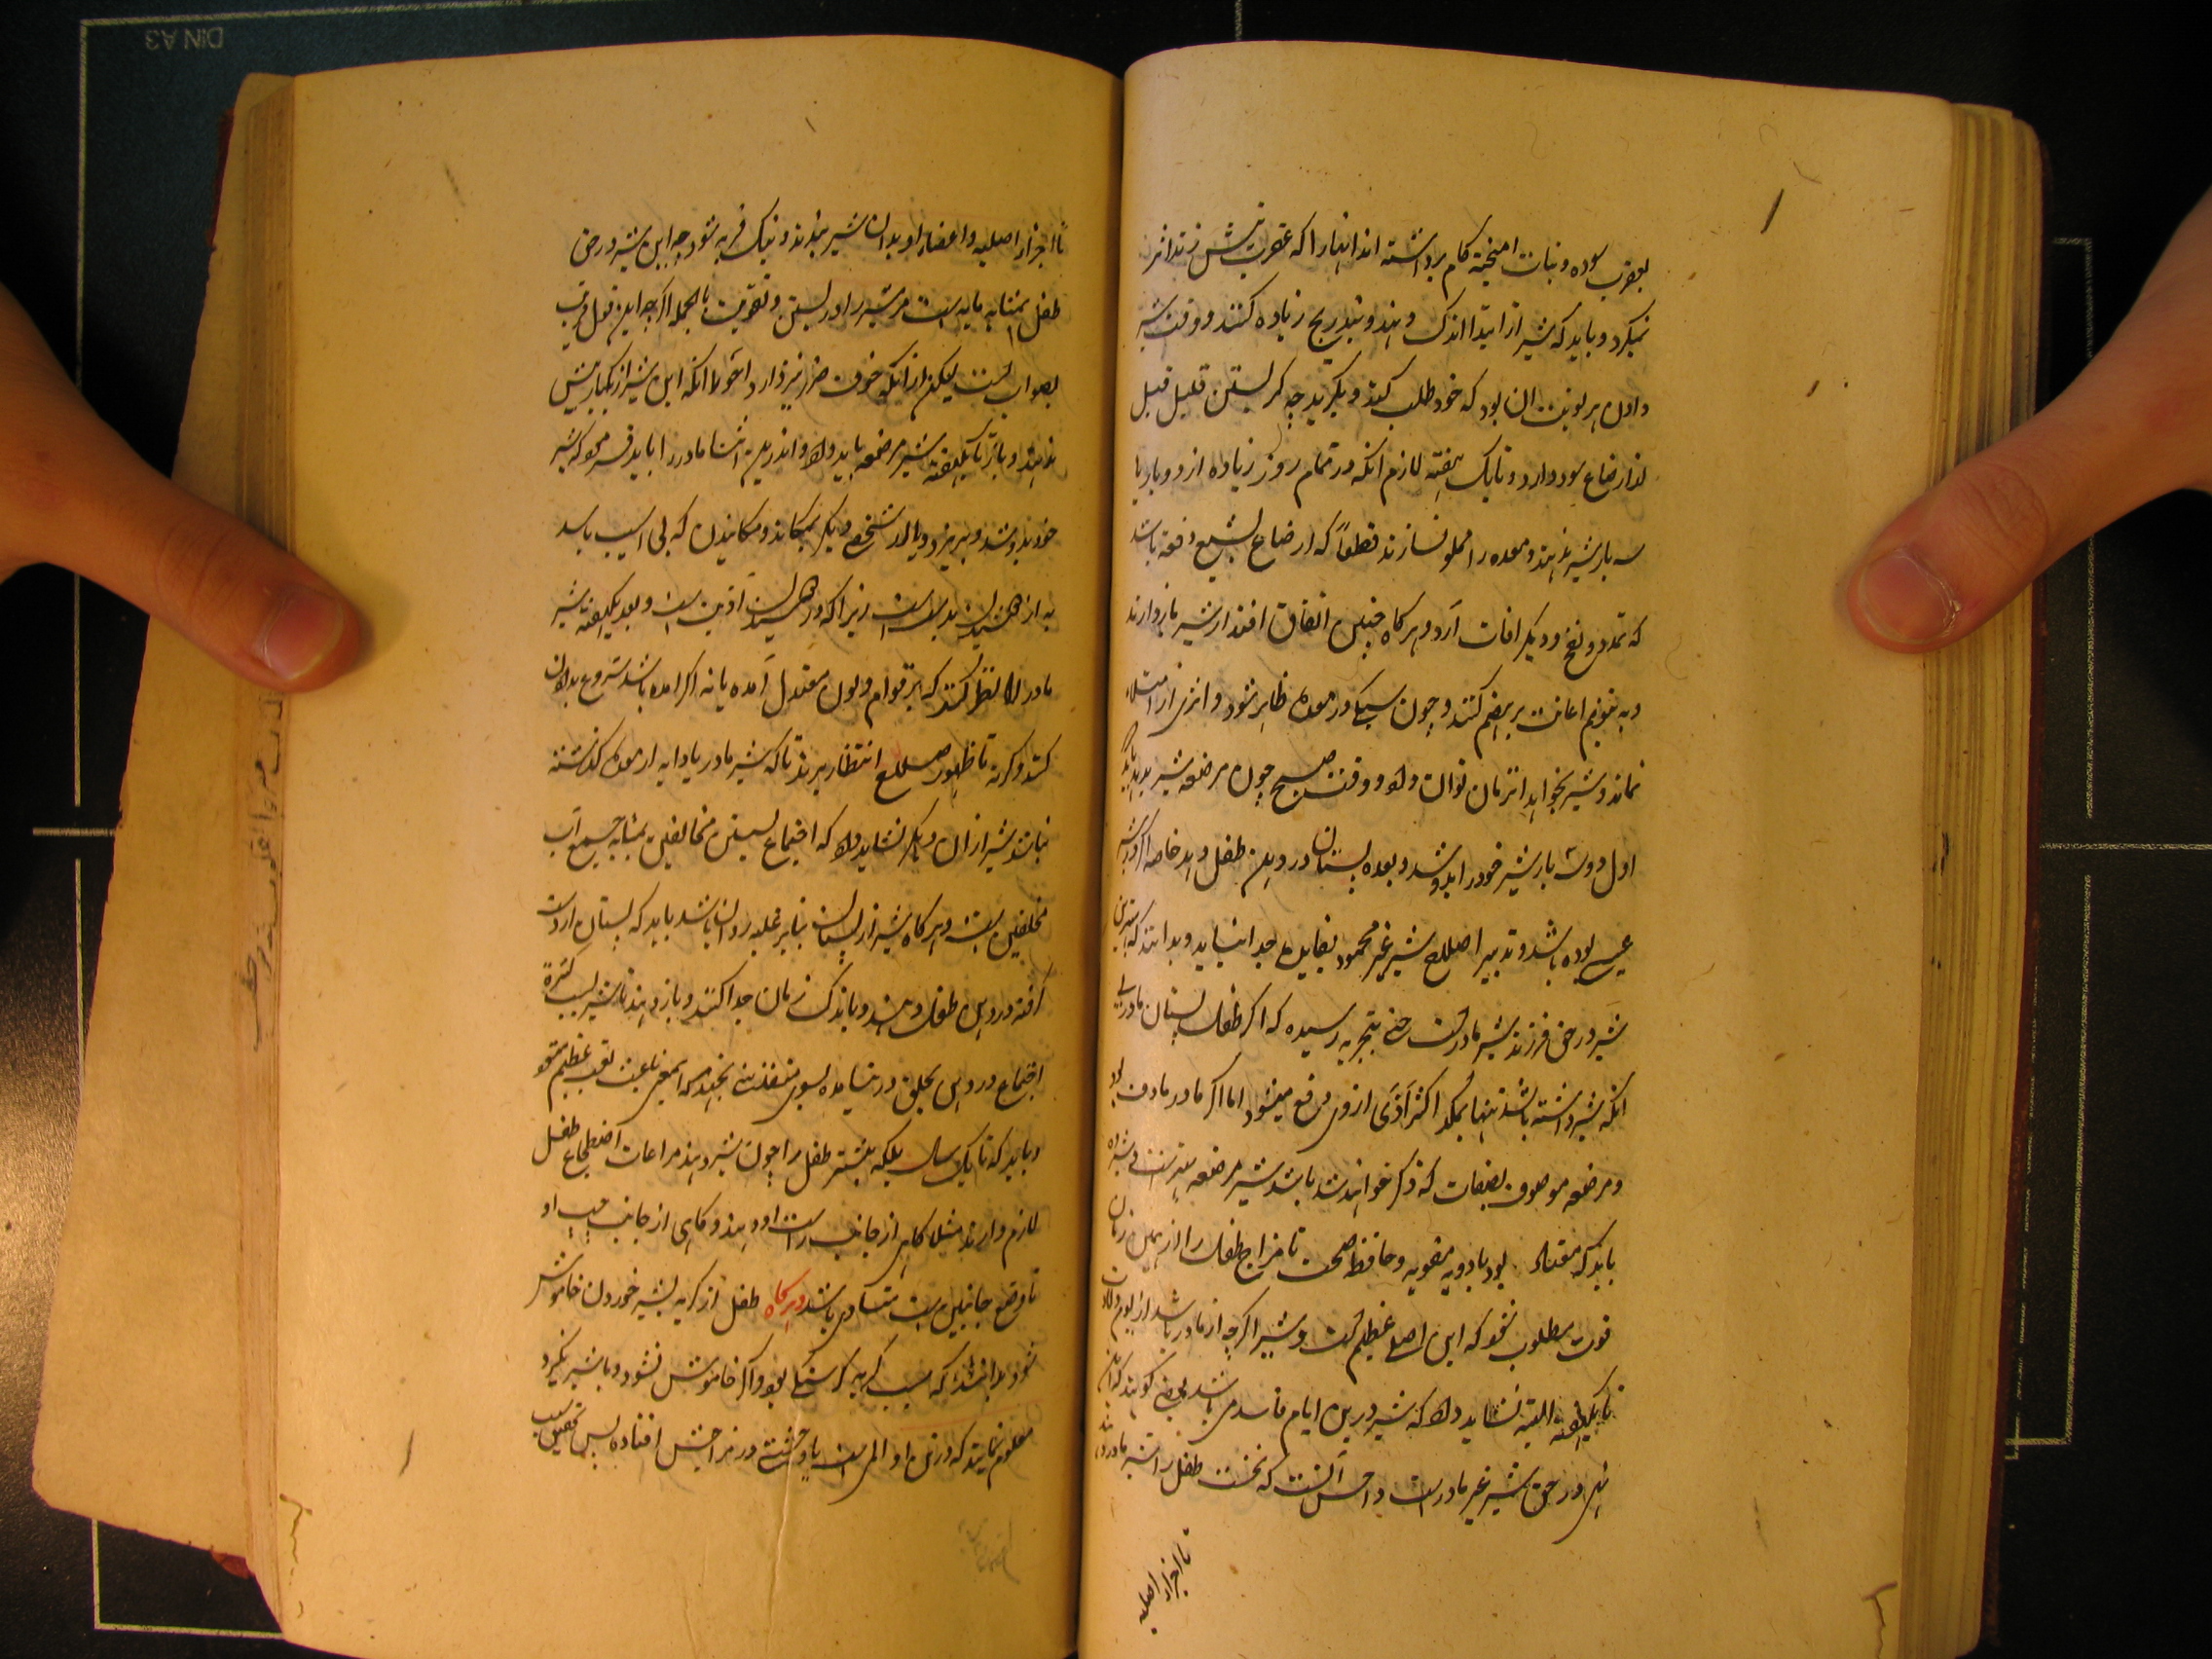 بعقرب سوده و نبات امیخته کام برداشته اند انها را که عقرب نیش زند اثر
نمیکرد و باید که شیر از ابتدا اندک دهند و بتدریج زیاده کنند و وقت شیر
دادن هر نوبت ان بود که خود طلب کند و بگرید چه گریستن قلیل قبل
از ارضاع سود دارد و تا یک هفته لازم انکه در تمام روز زیاده از دو بار یا
سه بار شیر ندهند و معده را مملو نسازند قطعاً که ارضاع بشبع دفعه باشد
که تمدد و نفخ و دیگر افات آرد و هر کاه چنین اتفاق افتد از شیر باز دارند
و به تنویم اعانت بر هضم کنند و چون سبکی در معده ظاهر شود و اثری از امتلاء
نماند و شیر بخواهد انزمان توان داد و وقت صبح چون مرضعه شیر بدهد باید که
اول دو سه بار شیر خود را بدوشد و بعده پستان در دهن طفل دهد خاصه اگر در شیر
عیبی بوده باشد و تدبیر اصلاح شیر غیر محمود بفایده جدا بیاید و بدانند که بهترین
شیر در حق فرزند شیر مادرست حتی بتجربه رسیده که اگر طفل پستان مادر بی
انکه شیر داشته باشد تنها بمکد اکثر اذی از وی دفع میشود اما اگر مادر ماوف بود
و مرضعه موصوف بصفات که ذکر خواهند شد باشد شیر مرضعه بهترست
باید که معتاد بود بادویه مقویه و حافظه صحت تا مزاج طفل را از همین زمان
قوت مطلوب شود که این اصلی عظیم ست و شیر اگرچه از مادر باشد از یوم ولادت
تا یکهفته البته نشاید داد که شیر درین ایام فاسد می باشد بعضی گویند که این
نهی در حق شیر غیر مادر است و احسن آنست که نخست طفل را شیر مادر دهند
تا اجزاء اصلیه
تا اجزاء اصلیه و اعضاء او بدان شیر بندند و نیک فربه شود چه این شیر در حق
طفل بمثابه مایه است مر شیر را در بستن و تقویت بالجمله اگرچه این قول قریب
بصواب ست لیکن از انکه خوف ضرر نیز دارد احوط انکه این شیر از یکبار بیش
ندهند و باز تا یکهفته شیر مرضعه باید داد و اندرین اثنا مادر را باید فرمود که شیر
خود بدوشد و بریزد و یا از شخصی دیگر بمکاند و مکانیدن که بی اسیب باشد
به از دوشیدن بدست است زیرا که در دوشیدن اذیت است و بعد یکهفته شیر
مادر را نظر کنند که بر قوام و لون معتدل آمده یا نه اگر امده باشد شروع بدان
کنند وگرنه تا ظهور صلاح انتظار برند تا که شیر مادر یا دایه از معده گذشته
نباشد شیر از ان دیگر نشاید داد که اجتماع لبنین مخالفین بمثابه جمع آب
مختلفین ست و هر کاه شیر از پستان بنا بر غلبه روان باشد باید که پستان از دست
گرفته در دهن طفل دهند و باندک زمان جدا کنند و باز دهند تا شیر بسبب کثرة
اجتماع در دهن بحلق در نیامده بسوی منفذ بینی بجهد که اینمعنی باعث تعب عظیم شود
و باید که تا یک سال بلکه بیشتر طفل را چون شیر دهند مراعات اضطجاع طفل
لازم دارند مثلا کاهی از جانب راست او دهند و کاهی از جانب چپ او
تا وضع جانبین ست متساوی باشد و هر کاه طفل از کریه بشیر خوردن خاموش
شود بدانند که سبب کریه کرسنکی بود و اگر خاموش نشود و یا شیر نکیرد
معلوم نمایند که در تن او المی است یا وحشتی در مزاجش افتاده پس تحقیق سبب